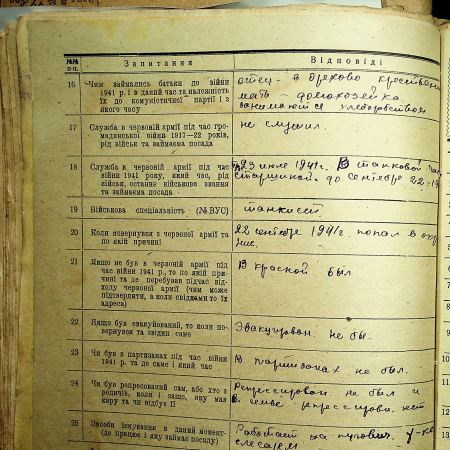 №№ п-п.
Запитання
Відповіді
16
Чим займались батьки до війни
1941 р. і в даний час та належність
їх до комуністичної партії і з
якого часу
отец - в
мать - домохозяйка
17
Служба в червоній армії під час гро-
мадянської війни 1917—22 років,
рід військ та займаєма посада
не служил.
18
Служба в червоній армії під час
війни 1941 року, який час, рід
військ, останнє військове звання
та займаєма посада
23 июне 1941 г. В танковой
старшиной. до Сентебре 22
19
Військова спеціальність (№ ВУС)
танкист
20
Коли повернувся з червоної армії та
по якій причині
22 сентебре 1941 г. попал в окру
21
Якщо не був в червоній армії під
час війни 1941 р., то по якій при-
чині та де перебував підчас від-
ходу червоної армії (чим може
підтвердити, а коли свідками то їх
адреса)
В красной был
22
Якщо був евакуйований, то коли по-
вернувся та звідки саме
Эвакуирован не бы.
23
Чи був в партизанах під час війни
1941 р. та де саме і який час
В партизанах не был.
24
Чи був репресирований сам, або хто з
родичів, коли і защо, яку мав
кару та чи відбув її
Репрессирован не был и
В семье репрессирован. нет
25
Засоби існування в даний момент-
(де працює і яку займає посаду)
Работает на
слесарем